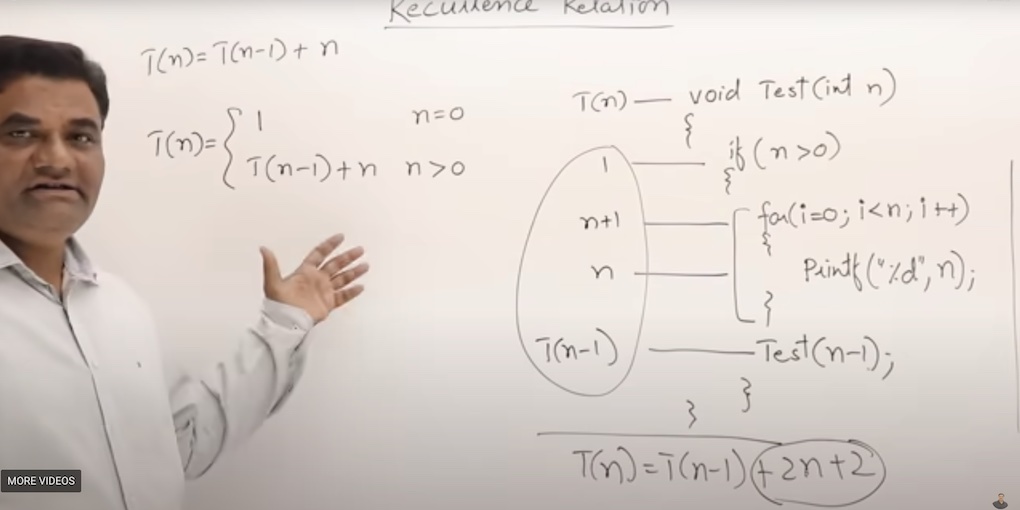 Recurrence Relation
T(n)=T(n-1)+ n
T(n)= { 1 n=0
T(n-1)+n n>0
T(n) — void Test(int n)
{
1 — if(n>0)
{
n+1 — for(i=0; i<n; i++)
{
n — Printf("%d", n);
}
T(n-1) — Test(n-1);
}
}
T(n)=T(n-1)+2n+2
MORE VIDEOS